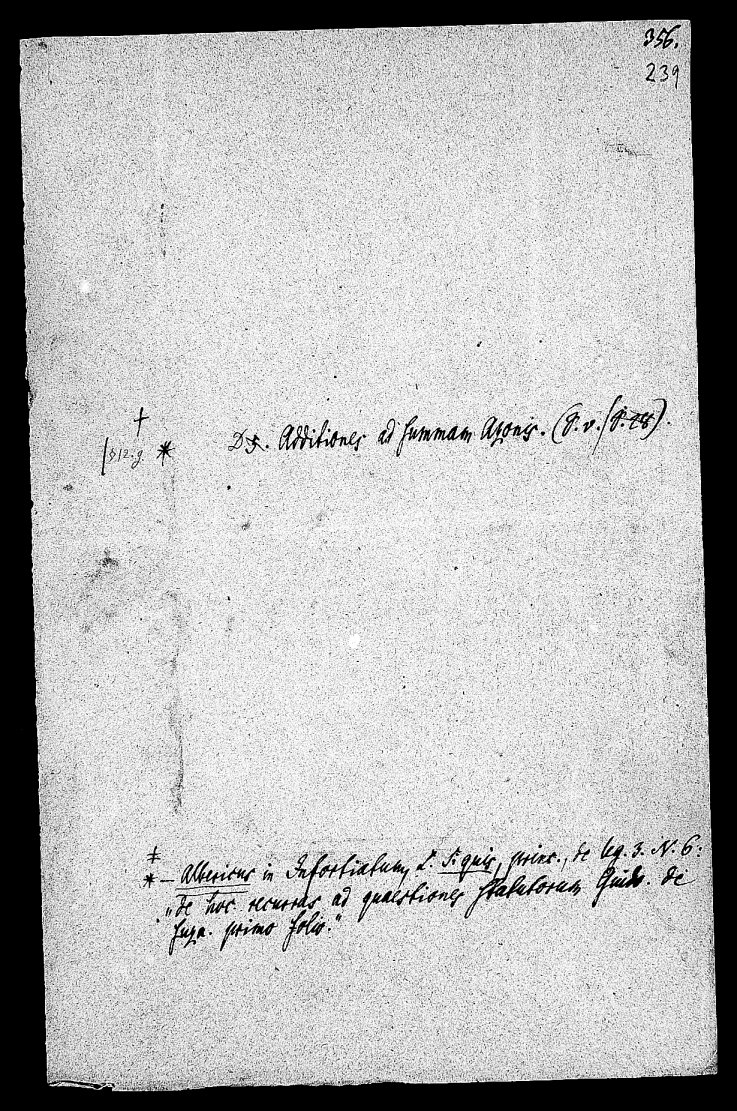 356.
239
†
* D 5. Additiones ad Summam Azonis. (S. v. S. 48).
‡
* — Albericus in Infortiatum, L. Si quis, princ., de leg. 3. N. 6:
„de hoc recurras ad quaestiones statutorum Guid. de
Suza. primo folio."